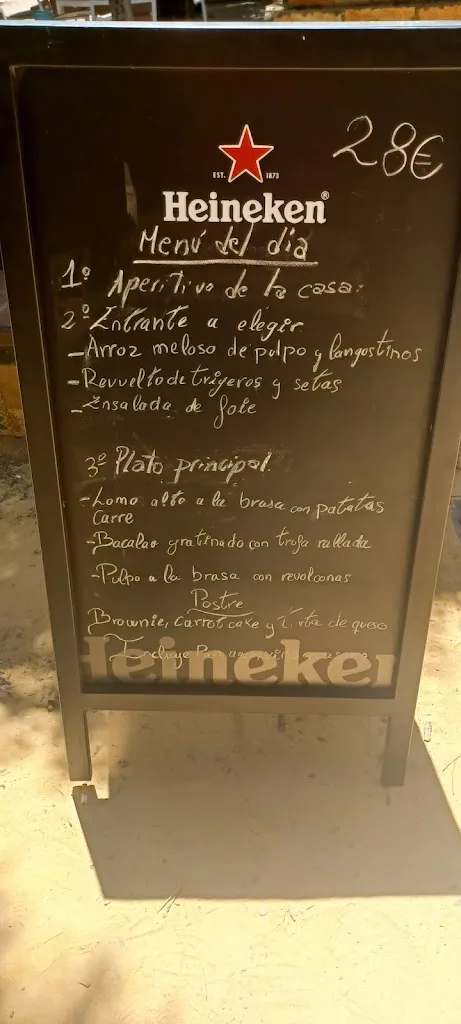 28€
EST. 1873
Heineken®
Menú del dia
1º Aperitivo de la casa.
2º Entrante a elegir
- Arroz meloso de pulpo y langostinos
- Revuelto de trigeros y setas
- Ensalada de foie
3º Plato principal.
- Lomo alto a la brasa con patatas
Carre
- Bacalao gratinado con trufa rallada
- Pulpo a la brasa con revolconas
Postre
Brownie, Carrot cake y tarta de queso
Incluye Pan agua
Heineken